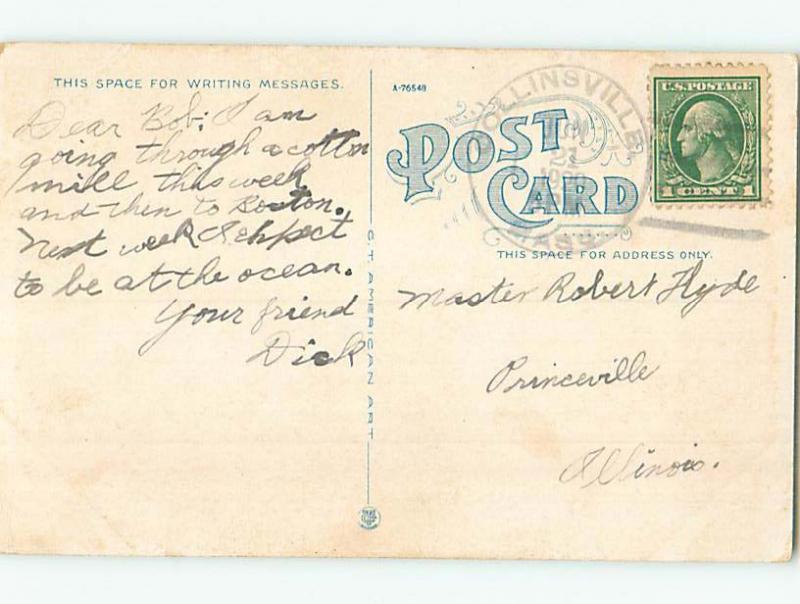 THIS SPACE FOR WRITING MESSAGES.
Dear Bob: I am
going through a cotton
mill this week
and then to Boston.
Next week I expect
to be at the ocean.
Your friend
Dick
C.T. AMERICAN ART
A-76548
POST
CARD
COLLINSVILLE
21
MASS.
U.S. POSTAGE
1 CENT 1
THIS SPACE FOR ADDRESS ONLY.
Master Robert Hyde
Princeville
Illinois.